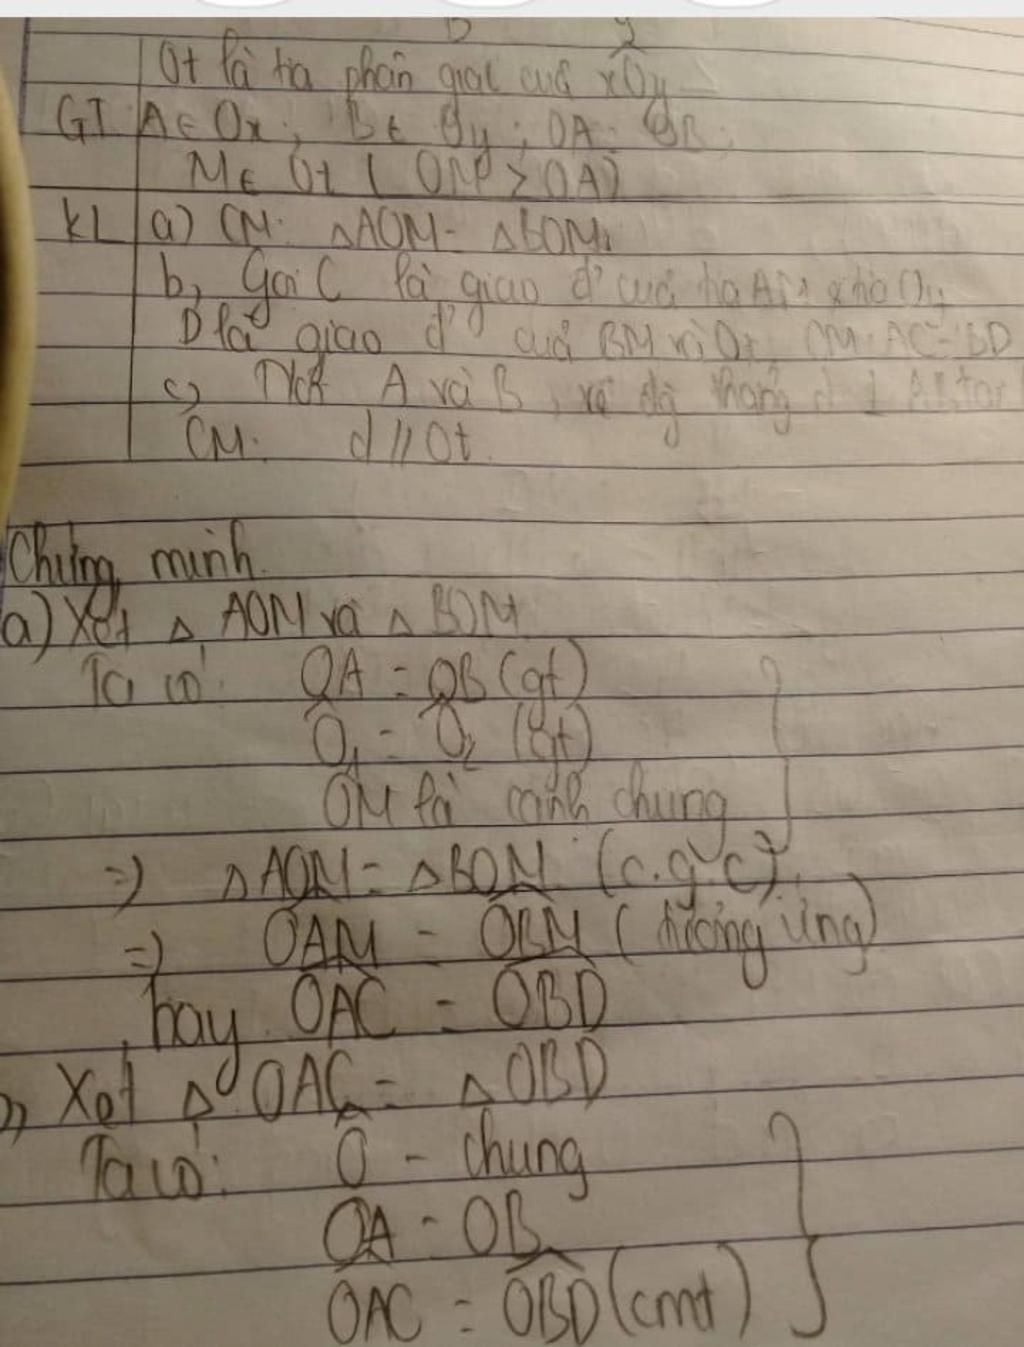 B y
Ot là tia phân giác của xOy
GT A∈Ox; B∈Oy; OA = OB;
M∈Ot (OM > OA)
KL a) CM: ΔAOM = ΔBOM.
b, Gọi C là giao đ' của tia AM và tia Oy
D là giao đ' của BM và Ox, CM: AC = BD
c, Nối A và B, vẽ đg thẳng d ⊥ AB tại
CM: d // Ot.
Chứng minh
a) Xét Δ AOM và Δ BOM
Ta có: OA = OB (gt)
Ô₁ = Ô₂ (gt)
OM là cạnh chung
=> ΔAOM = ΔBOM (c.g.c)
=> OAM = OBM (tương ứng)
hay OAC = OBD
Xét Δ OAC = Δ OBD
Ta có: Ô - chung
OA = OB
OAC = OBD (cmt)